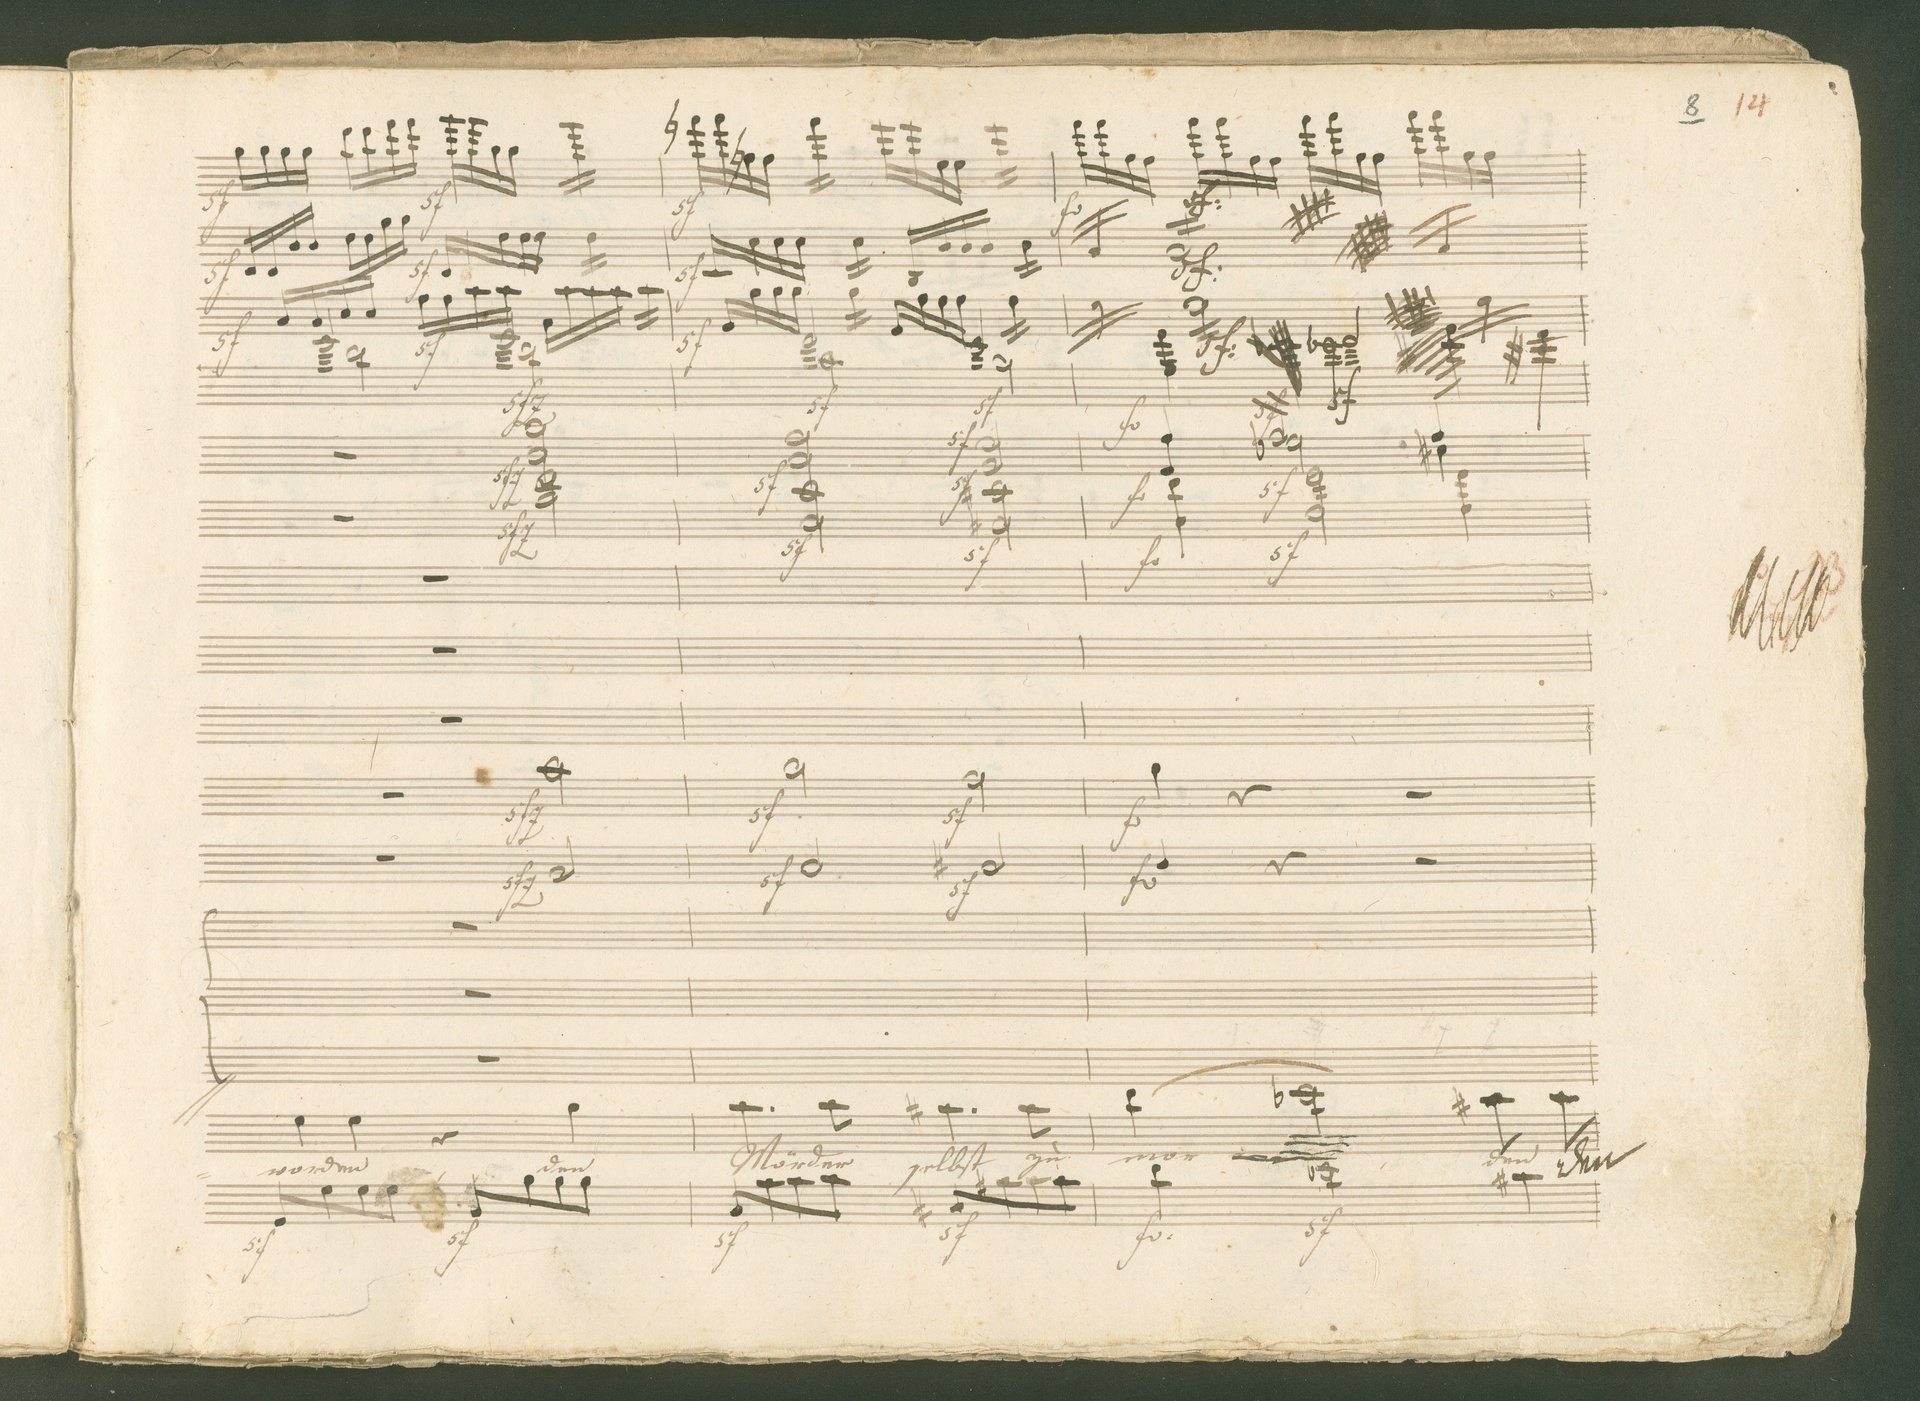 8 14
sf sf sf fo sf:
sf sf sf sf:
sf sf sf sf:
sfz sf sf fo sf
sfz sf sf fo sf
sfz sf sf fo sf
sfz sf sf fo
sfz sf sf fo
worden den Mörder selbst zu mor den den
sf sf sf sf fo: sf